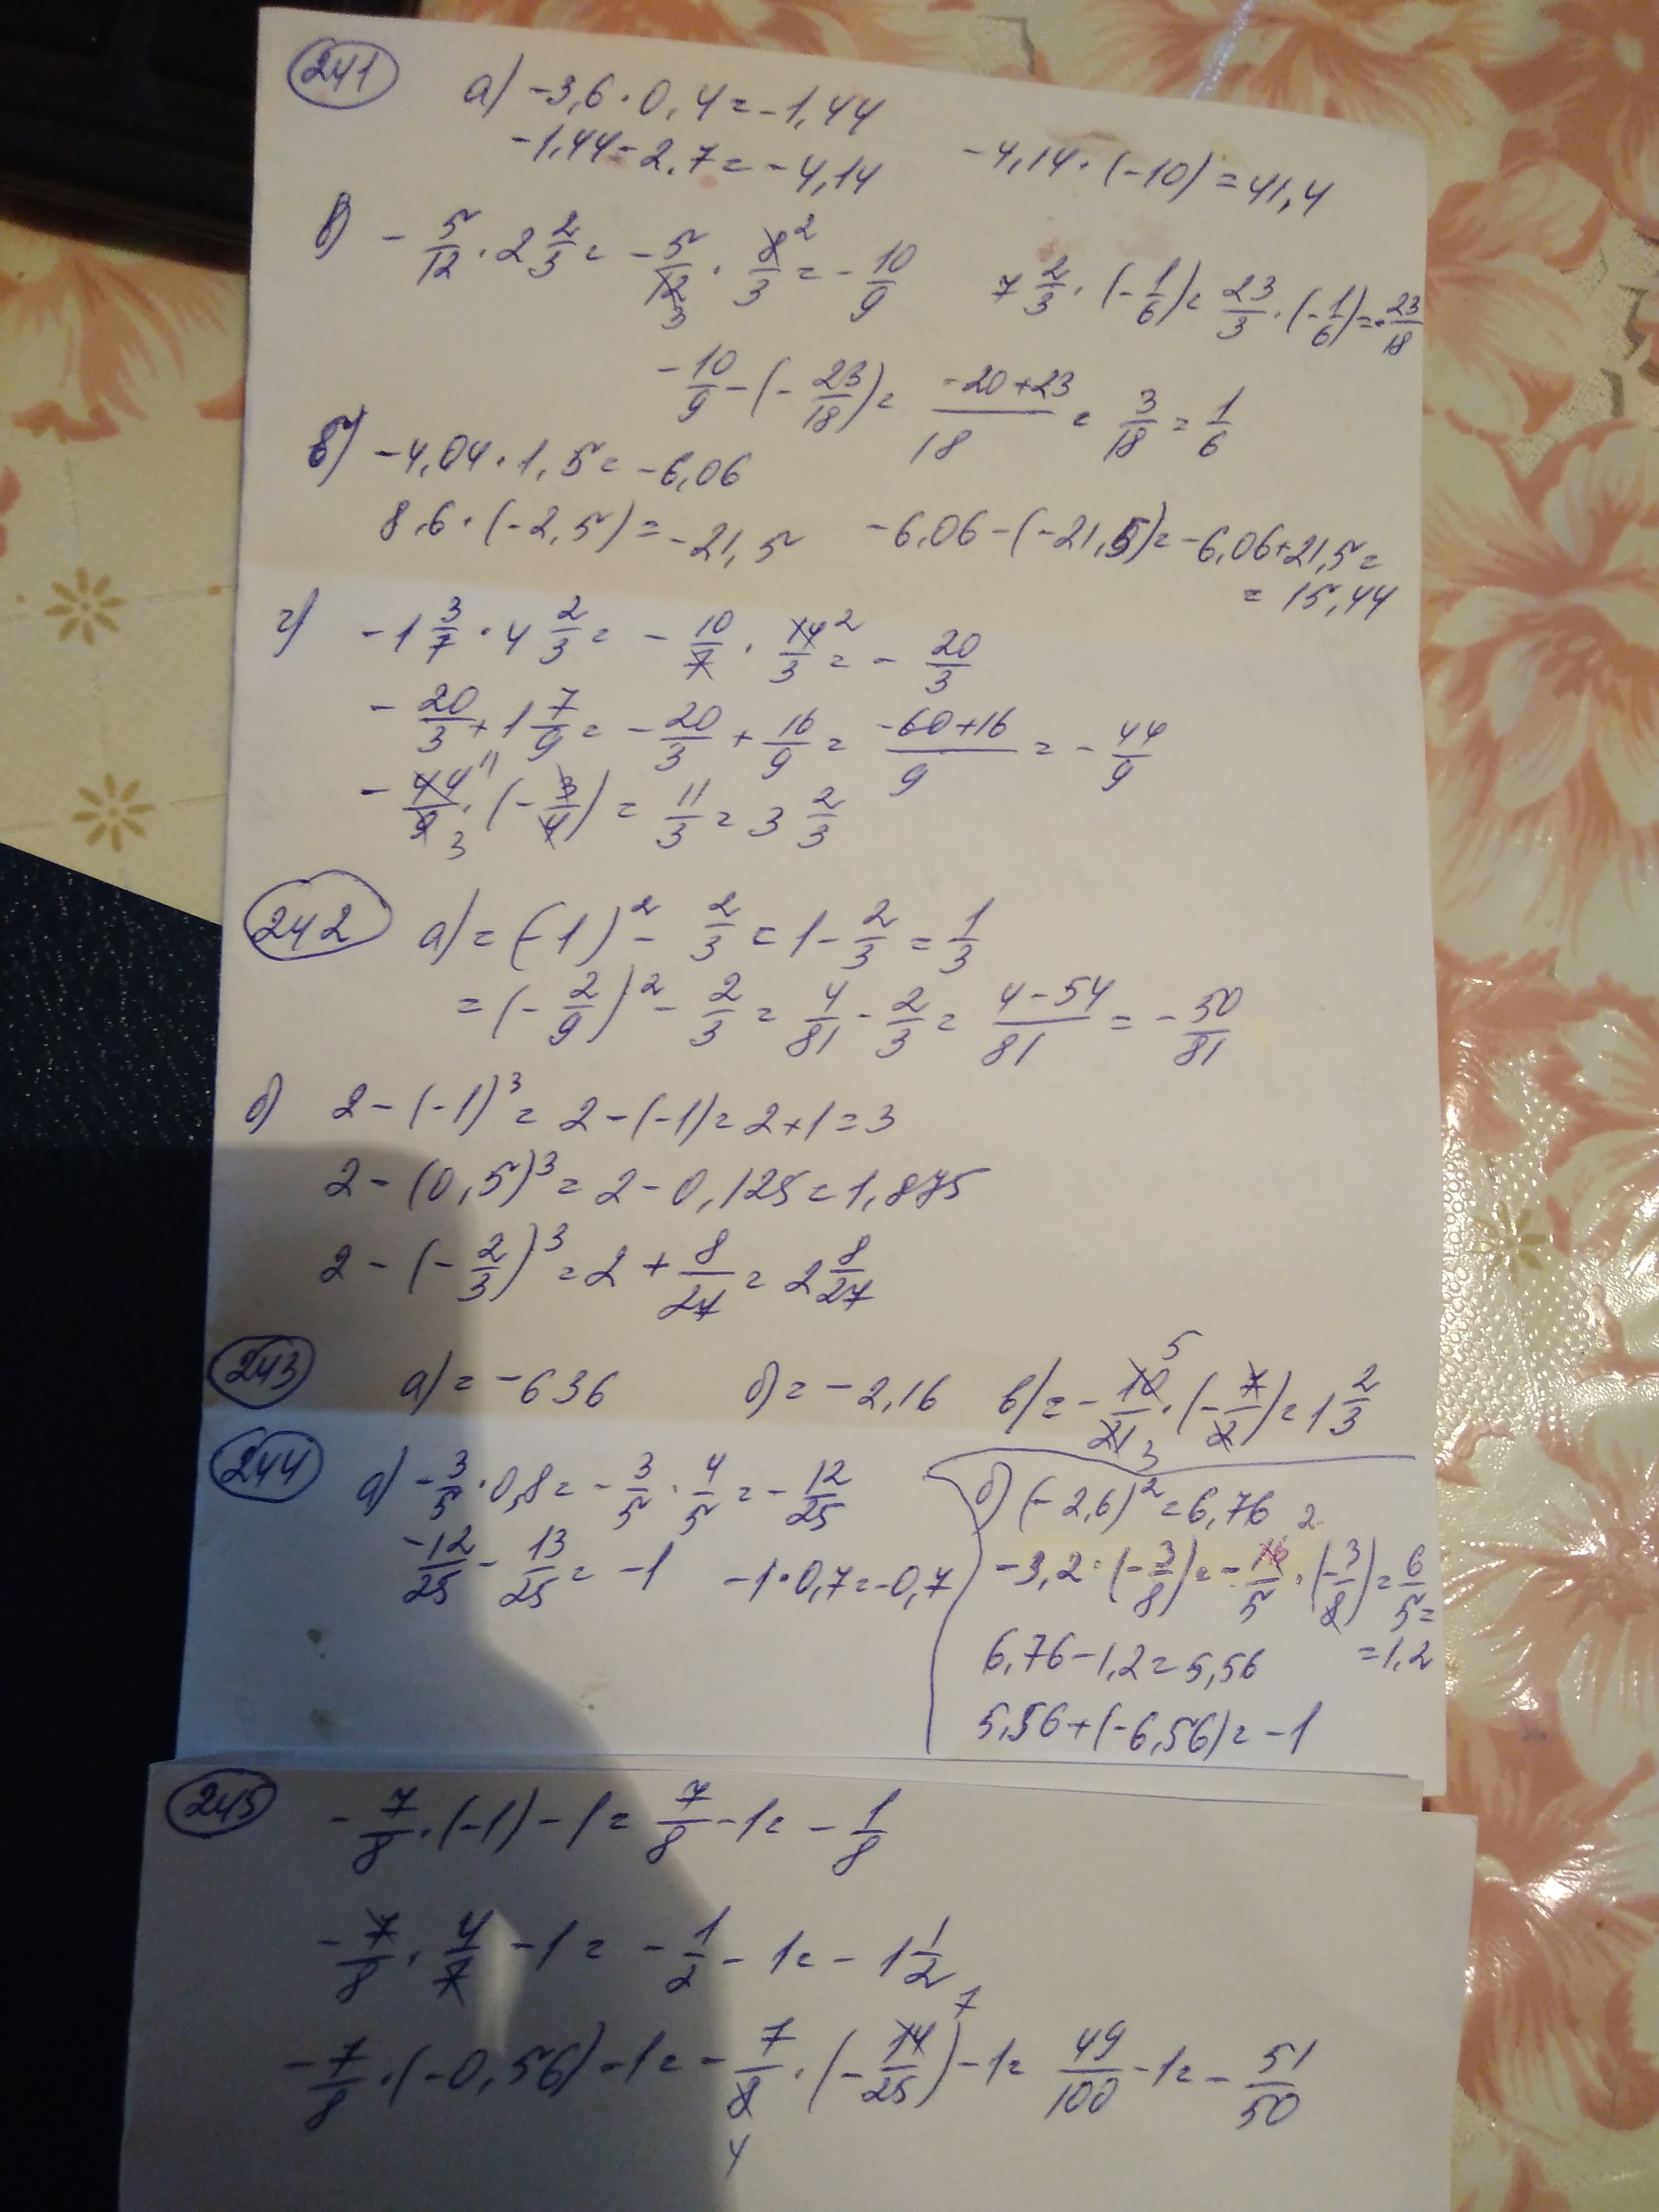 241 а) -3,6 · 0,4 = -1,44
-1,44 - 2,7 = -4,14   -4,14 · (-10) = 41,4
в) - 5/12 · 2 2/3 = - 5/12 · 8/3 = - 10/9   7 2/3 · (- 1/6) = 23/3 · (- 1/6) = - 23/18
3 2
- 10/9 - (- 23/18) = (-20+23)/18 = 3/18 = 1/6
б) -4,04 · 1,5 = -6,06
8,6 · (-2,5) = -21,5   -6,06 - (-21,5) = -6,06 + 21,5 =
= 15,44
г) -1 3/7 · 4 2/3 = - 10/7 · 14/3 = - 20/3
2
- 20/3 + 1 7/9 = - 20/3 + 16/9 = (-60+16)/9 = - 44/9
- 44/9 · (- 3/4) = 11/3 = 3 2/3
11 3
242 а) = (-1)² - 2/3 = 1 - 2/3 = 1/3
= (- 2/9)² - 2/3 = 4/81 - 2/3 = (4-54)/81 = - 50/81
б) 2 - (-1)³ = 2 - (-1) = 2 + 1 = 3
2 - (0,5)³ = 2 - 0,125 = 1,875
2 - (- 2/3)³ = 2 + 8/27 = 2 8/27
243 а) = -636   б) = -2,16   в) = - 10/21 · (- 7/2) = 1 2/3
5 3
244 а) - 3/5 · 0,8 = - 3/5 · 4/5 = - 12/25
-12/25 - 13/25 = -1   -1 · 0,7 = -0,7
б) (-2,6)² = 6,76
-3,2 · (- 3/8) = - 16/5 · (- 3/8) = 6/5 =
2
= 1,2
6,76 - 1,2 = 5,56
5,56 + (-6,56) = -1
245 - 7/8 · (-1) - 1 = 7/8 - 1 = - 1/8
- 7/8 · 4/7 - 1 = - 1/2 - 1 = - 1 1/2
- 7/8 · (-0,56) - 1 = - 7/8 · (- 14/25) - 1 = 49/100 - 1 = - 51/50
7
4